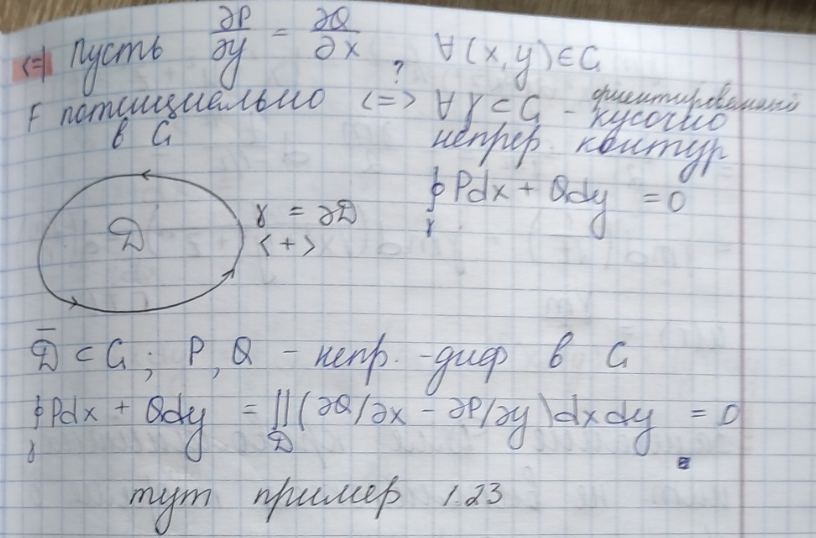 <=| Пусть ∂P/∂y = ∂Q/∂x, ∀(x,y)∈G
?
F потенциально <=> ∀γ⊂G - ориентированный кусочно
в G непрер. контур
∮γ Pdx + Qdy = 0
D γ = ∂D
<+>
D̄ ⊂ G; P, Q - непр. -диф в G
∮γ Pdx + Qdy = ∬D (∂Q/∂x - ∂P/∂y)dxdy = 0
тут пример 1.23